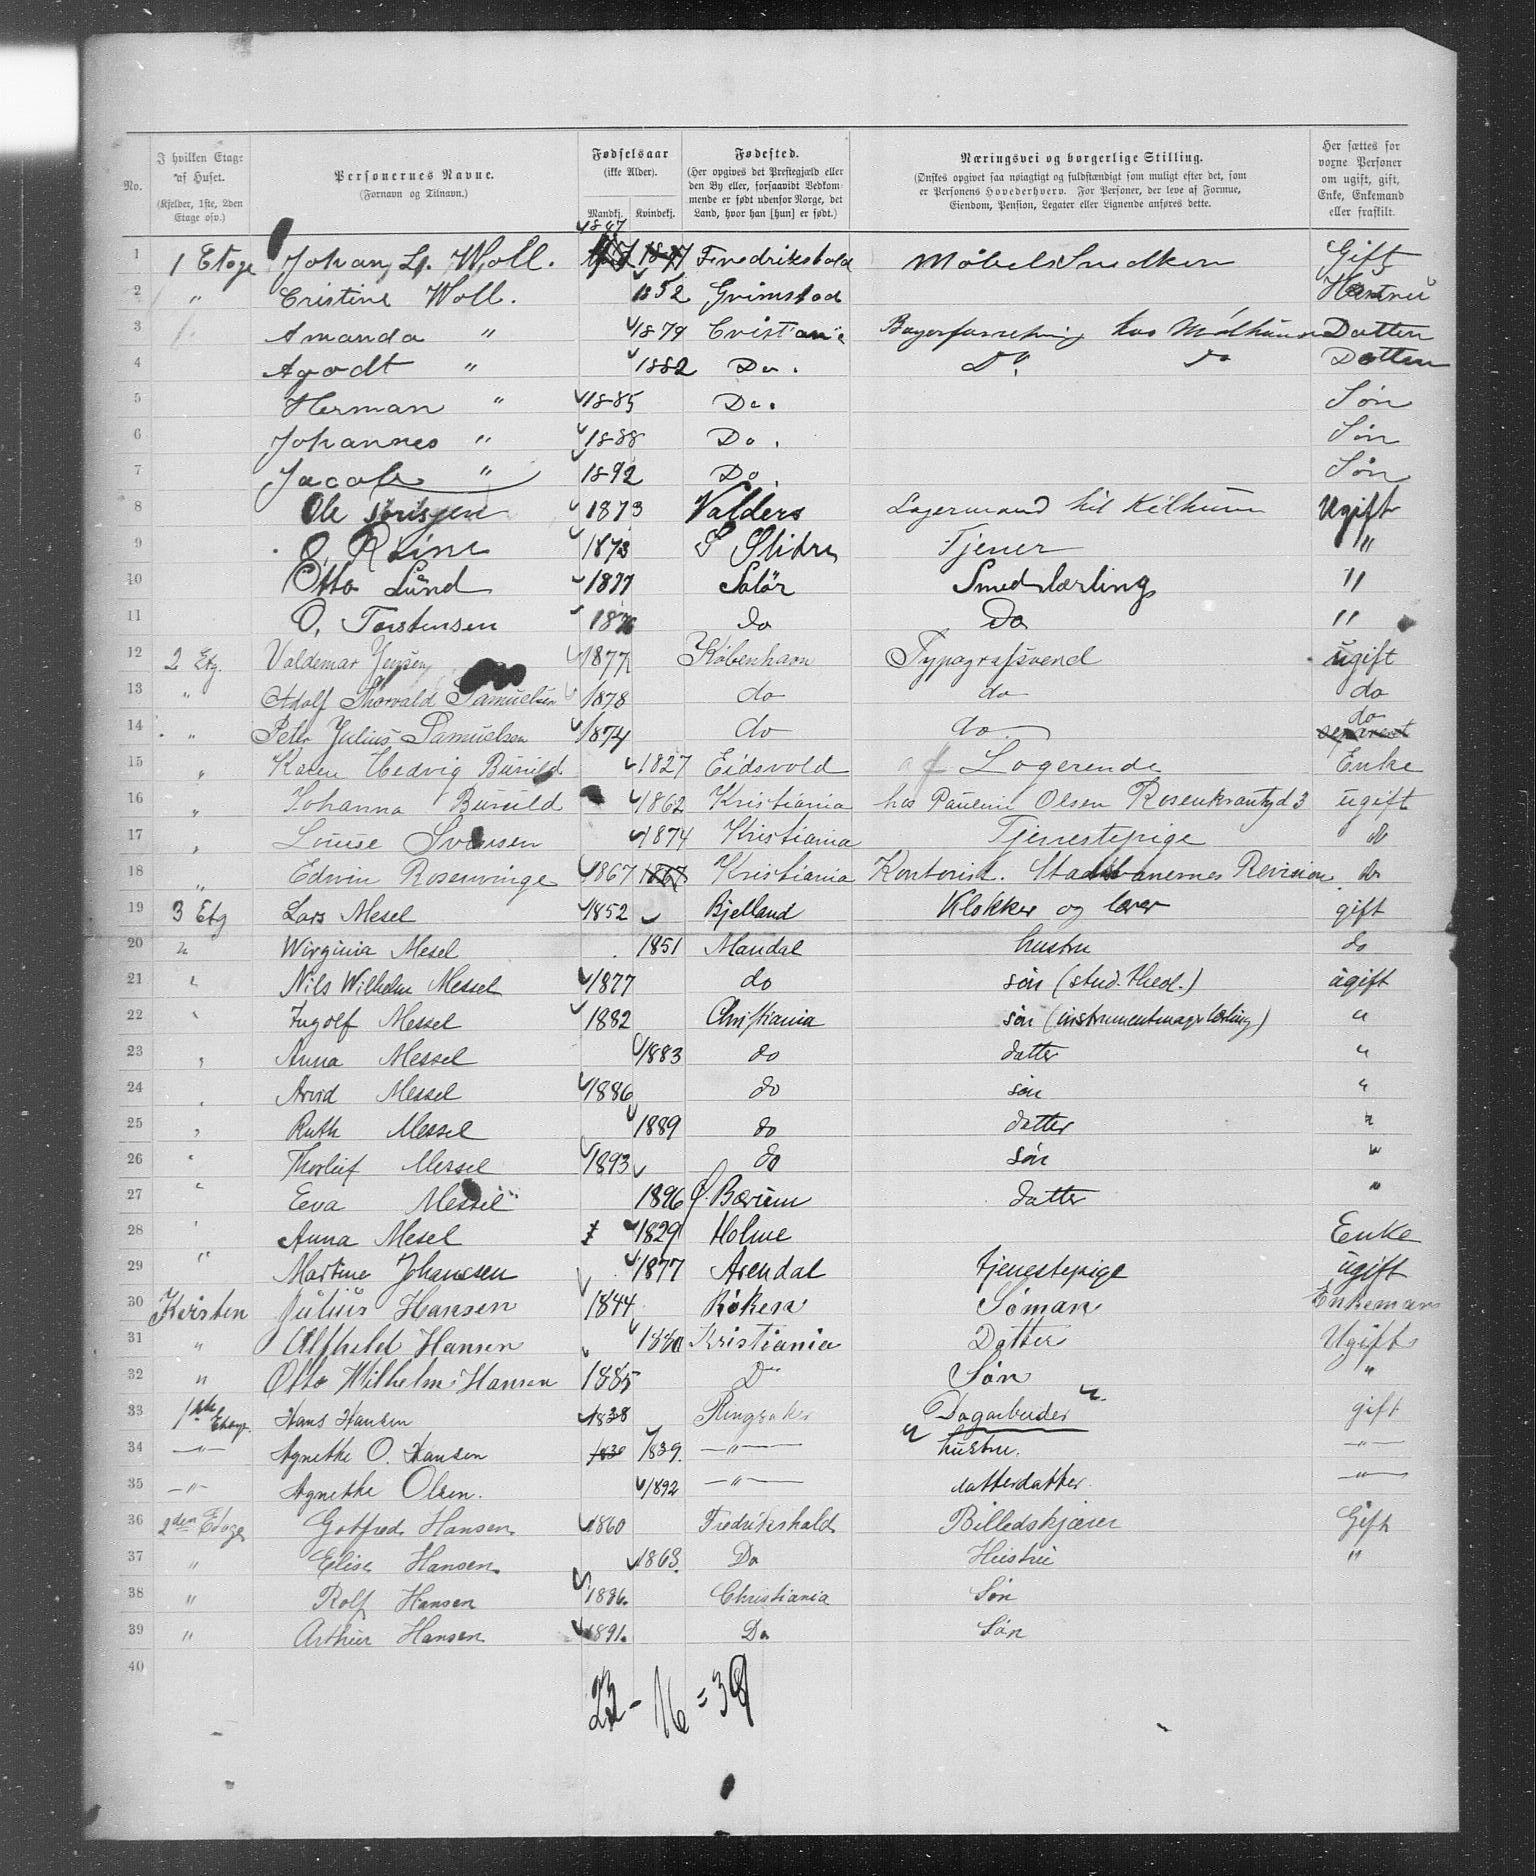 No.
I hvilken Etage af Huset.
(Kjelder, 1ste, 2den Etage osv.)
Personernes Navne.
(Fornavn og Tilnavn.)
Fødselsaar
(ikke Alder).
Mandkj. Kvindekj.
Fødested.
(Her opgives det Prestegjæld eller den By eller, forsaavidt Vedkommende er født udenfor Norge, det Land, hvor han [hun] er født.)
Næringsvei og borgerlige Stilling.
(Ønskes opgivet saa nøiagtigt og fuldstændigt som muligt efter det, som er Personens Hovederhverv. For Personer, der leve af Formue, Eiendom, Pension, Legater eller Lignende anføres dette.
Her sættes for voxne Personer om ugift, gift, Enke, Enkemand eller fraskilt.
1 1 Etage Johan L. Woll. 1847 1847 Fredrikshald Møbelsnedker Gift
2 " Cristine Woll. 1852 Grimstad Hustru
3 Amanda " 1879 Cristiania Datter
4 Agodt " 1882 Do. Do. Do Datter
5 Herman " 1885 Do. Søn
6 Johannes " 1888 Do. Søn
7 Jacob " 1892 Do. Søn
8 Ole 1873 Valders Lagermand Ugift
9 1873 S Slidre Tjener "
10 Otto Lund 1877 Solør Smedlærling "
11 O. Torstensen 1876 do Do "
12 2 Etg. Valdemar Jensen 1877 København Typografsvend ugift
13 " Adolf Thorvald Samuelsen 1878 do do do
14 " Peter Julius Samuelsen 1874 do do do
15 " Karen Hedvig Buruld 1827 Eidsvold af Logerende Enke
16 " Johanna Buruld 1862 Kristiania hos Pauline Olsen Rosenkrantzgd 3 ugift
17 " Louise Svensen 1874 Kristiania Tjenestepige do
18 " Edvin Rosenvinge 1867 1867 Kristiania Kontorist. Statsbanernes Revision do
19 3 Etg Lars Mesel 1852 Bjelland Klokker og lærer gift
20 " Wirginia Mesel 1851 Mandal hustru do
21 " Nils Wilhelm Messel 1877 do søn (stud. theol.) ugift
22 " Ingolf Messel 1882 Christiania søn (instrumentmagerlærling) "
23 " Anna Messel 1883 do datter "
24 " Arvid Messel 1886 do søn "
25 " Ruth Messel 1889 do datter "
26 " Thorleif Messel 1893 do søn "
27 " Eva Messel 1896 Ø. Bærum datter "
28 " Anna Mesel 1829 Holme Enke
29 " Martine Johanssen 1877 Arendal tjenestepige ugift
30 Kvisten Julius Hansen 1844 Røken Søman Enkeman
31 " Alfhild Hansen 1880 Kristiania Datter Ugift
32 " Otto Wilhelm Hansen 1885 Do Søn "
33 1ste Etage Hans Hansen 1838 Ringsaker Dagarbeider gift
34 —"— Agnethe O. Hansen 1839 1839. —"— hustru. —"—
35 —"— Agnethe Olsen. 1892 —"— datterdatter —"—
36 2den Etage Gotfred Hansen 1860 Fredrikshald Billedskjærer Gift
37 " Elise Hansen. 1863. Do Hustru "
38 " Rolf Hansen 1886. Christiania Søn
39 " Arthur Hansen 1891. Do Søn
40
23 - 16 = 39